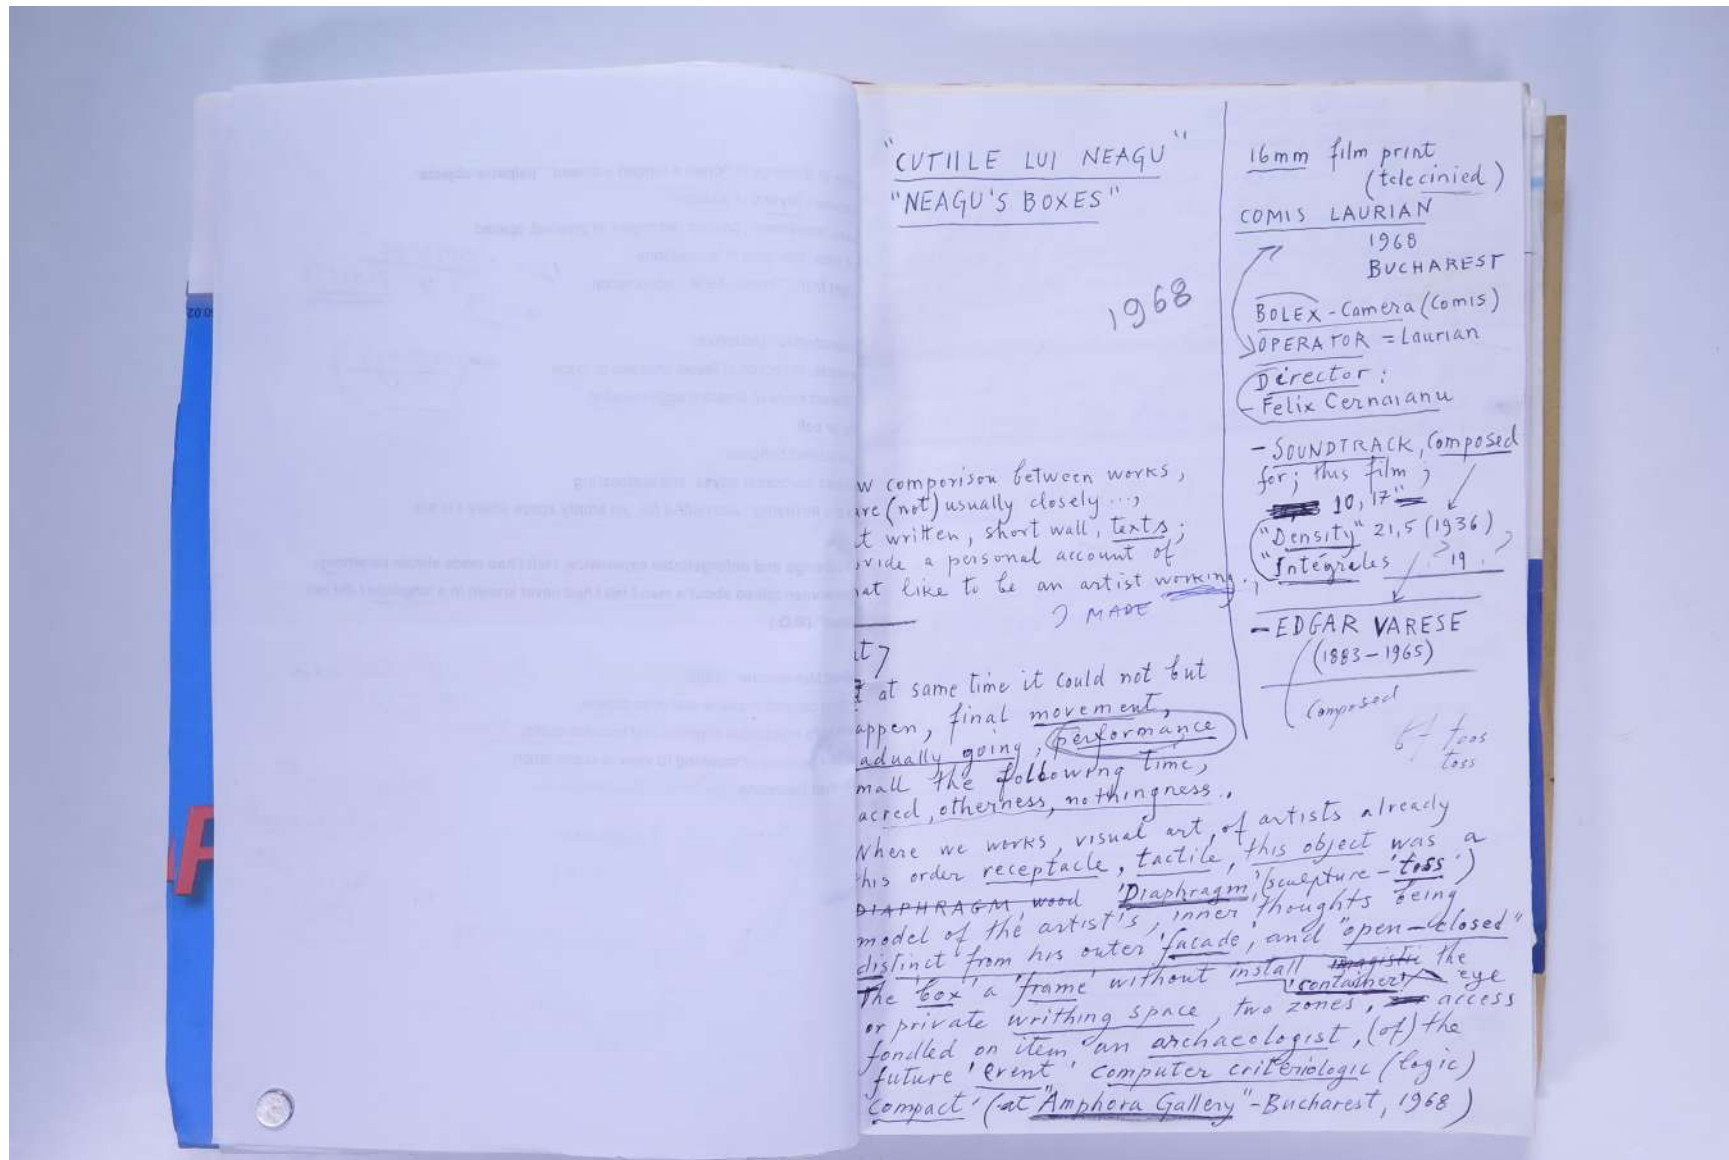 "CUTIILE LUI NEAGU"
"NEAGU'S BOXES"
1968
w comparison between works,
are (not) usually closely ...,
t written, short wall, texts;
ovide a personal account of
hat like to be an artist working.,
MADE
at same time it could not but
appen, final movement,
adually going, performance
mall the following time,
acred, otherness, nothingness.,
Where we works, visual art, of artists already
his order receptacle, tactile, this object was a
DIAPHRAGM, wood 'Diaphragm' (sculpture - 'toss')
model of the artist's, inner thoughts being
distinct from his outer 'facade', and "open-closed"
The 'box' a 'frame' without install imagistic the
'container' eye
or private writhing space, two zones, access
fondled on item, an archaeologist, (of) the
future 'event' computer criteriologic (logic)
compact' (at "Amphora Gallery" - Bucharest, 1968)
16mm film print
(telecinied)
COMIS LAURIAN
1968
BUCHAREST
BOLEX - Camera (Comis)
OPERATOR = Laurian
Director:
- Felix Cernaianu
- SOUNDTRACK, Composed
for; this film;
10,17"
"Density" 21,5 (1936)
"Intégrales ? 19 . ?
- EDGAR VARESE
(1883-1965)
Composed
toos
toss